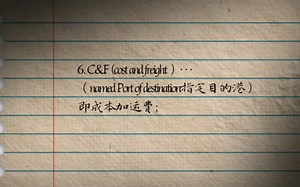 6. C&F (cost and freight) …
( named Port of destination指定目的港)
即成本加运费;